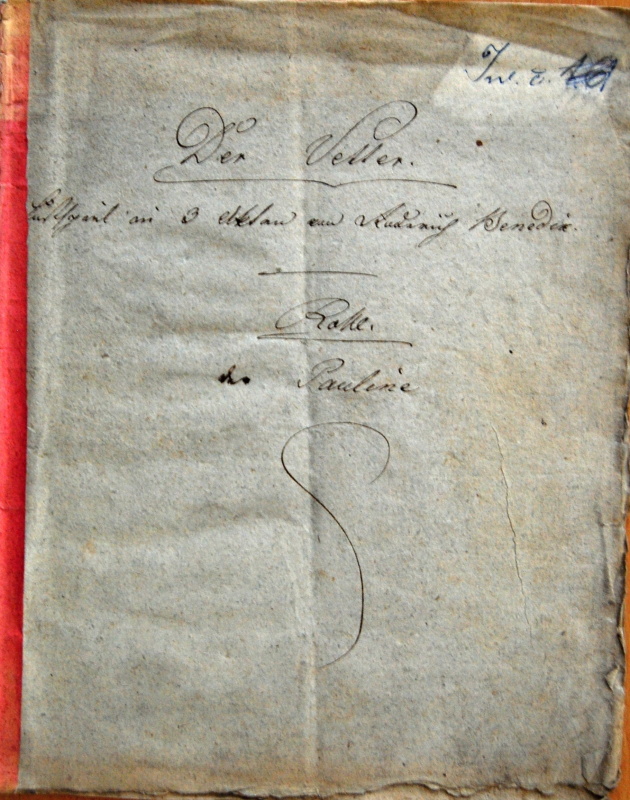 Inv. č.
Der Vetter.
Lustspiel in 3 Akten von Roderich Benedix.
Rolle.
der Pauline